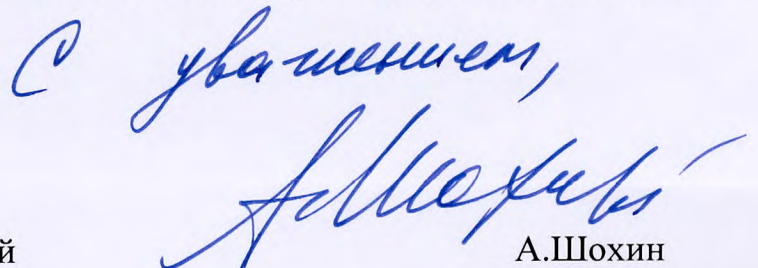 С уважением,
А.Шохин
й А.Шохин